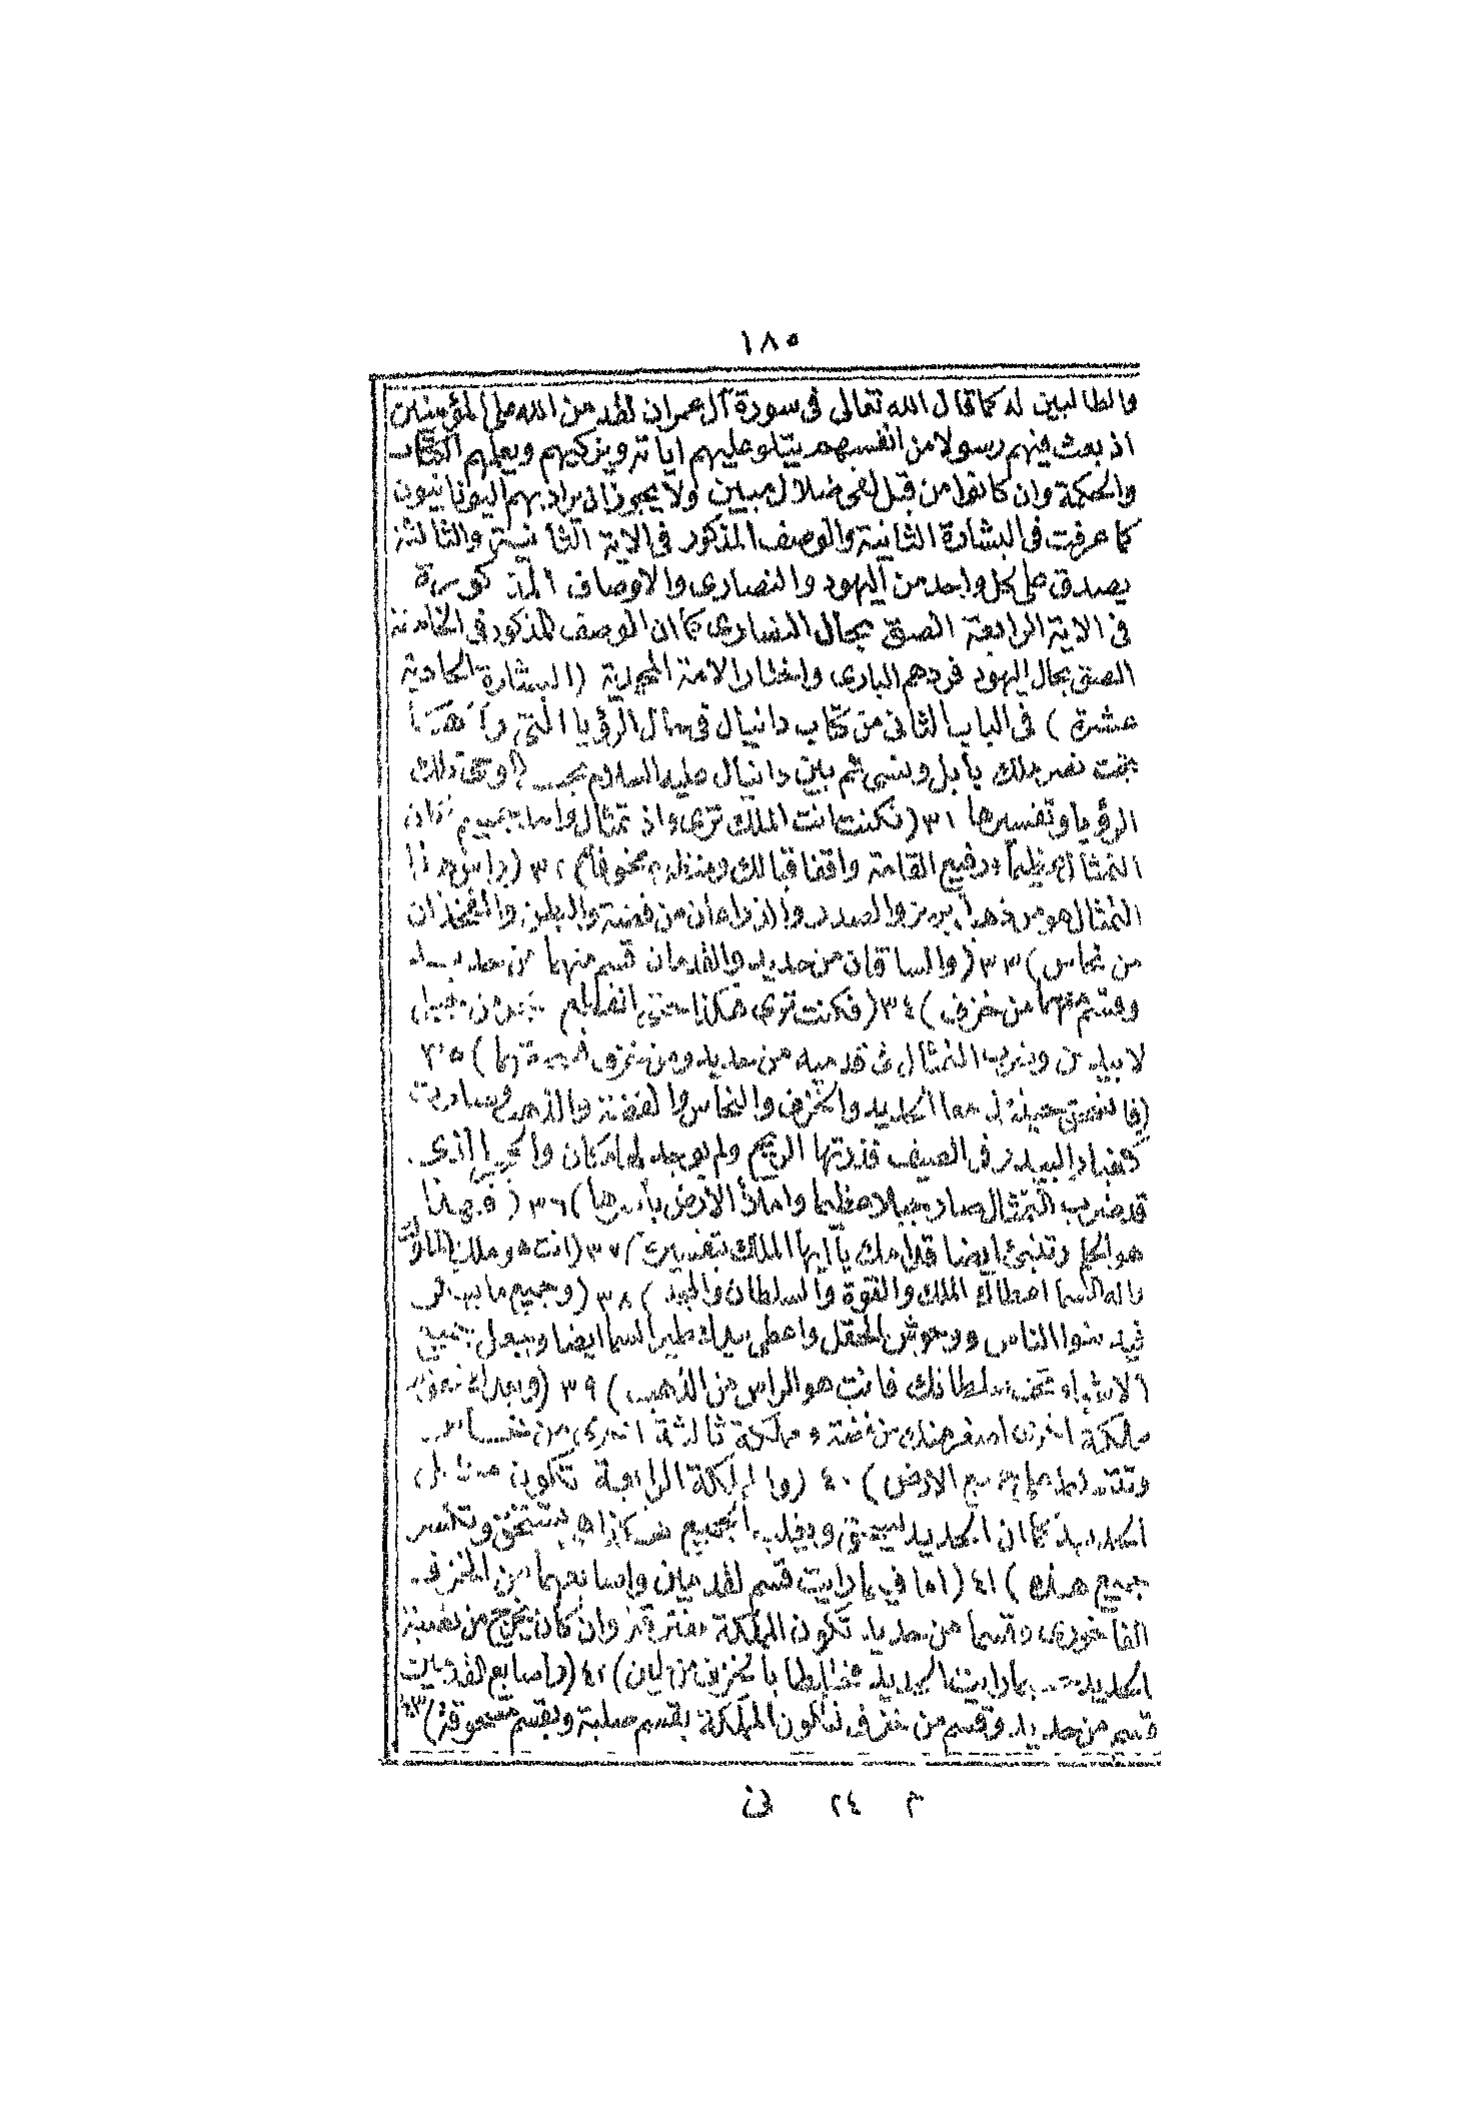 ١٨٥
والطالبين له كما قال الله تعالى فى سورة آل عمران لقد من الله على المؤمنين
اذ بعث فيهم رسولا من انفسهم يتلو عليهم اياته ويزكيهم ويعلمهم الكتاب
والحكمة وان كانوا من قبل لفى ضلال مبين ولا يجوز ان يراد بهم اليونانيون
كما عرفت فى البشارة الثانية والوصف المذكور فى الاية الثانية والثالثة
يصدق على كل واحد من اليهود والنصارى والاوصاف المذكورة
فى الاية الرابعة الصق بحال النصارى كما ان الوصف المذكور فى الخامسة
الصق بحال اليهود فردهم البارى واختار الامة المحمدية (البشارة الحادية
عشرة) فى الباب الثانى من كتاب دانيال فى حال الرؤيا التى رآها
بخت نصر ملك بابل ونسى ثم بين دانيال عليه السلام بحسب الوحى تلك
الرؤيا وتفسيرها ٣١ (فكنت انت الملك ترى واذ تمثال واحد جسيم وكان
التمثال عظيماً ورفيع القامة واقفا قبالك ومنظره مخوفا) ٣٢ (راس هذا
التمثال هو من ذهب ابريز والصدر والذراعان من فضة والبطن والفخذان
من نحاس) ٣٣ (والساقان من حديد والقدمان قسم منهما من حديد
وقسم منهما من خزف) ٣٤ (فكنت ترى هكذا حتى انقطع حجر من جبل
لا بيدين وضرب التمثال فى قدميه من حديد ومن خزف فسحقهما) ٣٥
(فانسحق حينئذ معا الحديد والخزف والنحاس والفضة والذهب وصارت
كغبار البيدر فى الصيف فذرتها الريح ولم يوجد لها مكان والحجر الذى
قد ضرب التمثال صار جبلا عظيما وامتلأ الأرض بأسرها) ٣٦ (فهذا
هو الحلم وتنبئ ايضا قدامك يا ايها الملك بتفسيره) ٣٧ (انت هو ملك الملوك
واله السما اعطاك الملك والقوة والسلطان والمجد) ٣٨ (وجميع ما يسكن
فيه بنوا الناس ووحوش الحقل واعطى بيدك طير السما ايضا وجعل جميع
الاشياء تحت سلطانك فانت هو الراس من الذهب) ٣٩ (وبعدك تقوم
مملكة اخرى اصغر منك من فضة ومملكة ثالثة اخرى من نحاس
وتتسلط على جميع الارض) ٤٠ (والمملكة الرابعة تكون مثل
الحديد كما ان الحديد يسحق ويغلب الجميع هكذا هى تسحق وتكسر
جميع هذه) ٤١ (اما فيما رايت قسم القدمين واصابعهما من الخزف
الفاخورى وقسما من حديد تكون المملكة مفترقة وان كان يخرج من نصبة
الحديد حسبما رايت الحديد مختلطا بالخزف من طين) ٤٢ (واصابع القدمين
قسم من حديد وقسم من خزف فتكون المملكة بقسم صلبة وبقسم مسحوقة) ٤٣
م ٢٤ نى